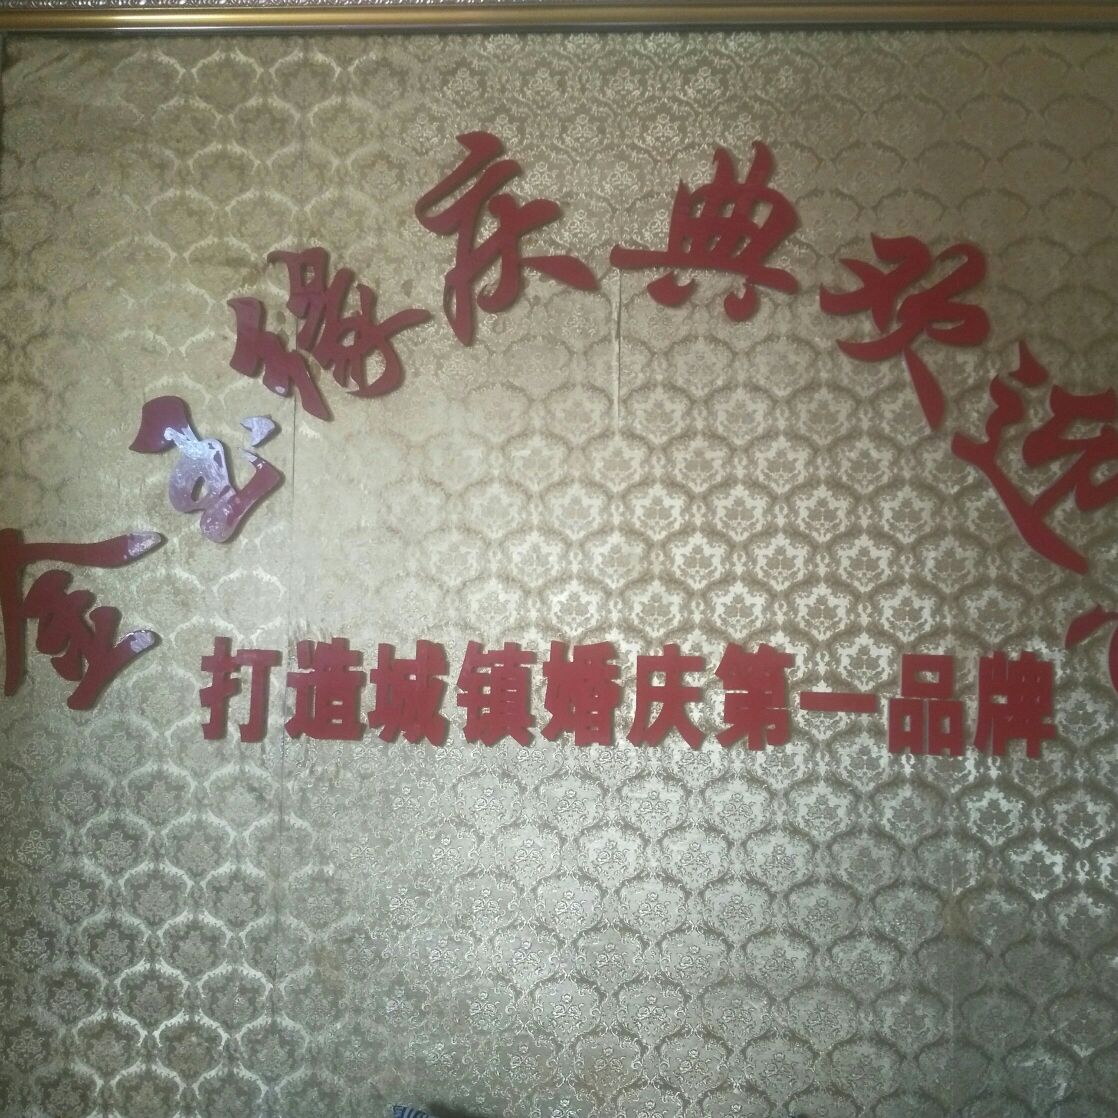 金玉缘庆典欢迎
打造城镇婚庆第一品牌